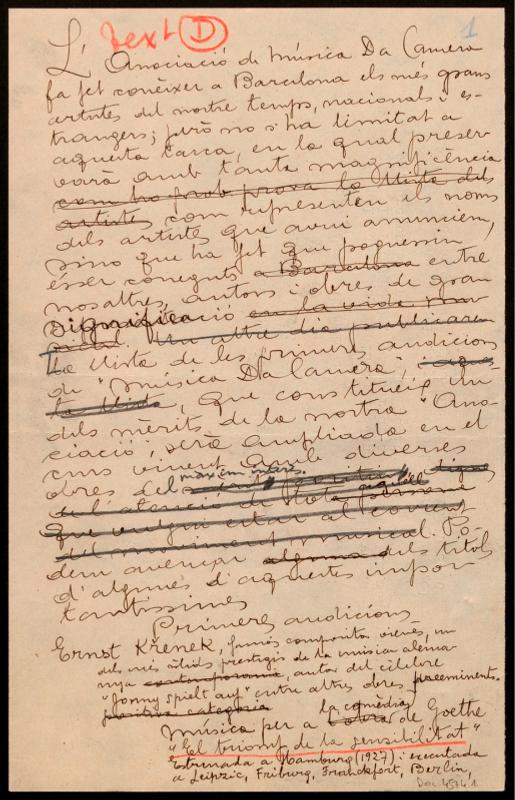 Text D
1
L'Associació de Música Da Camera
fa fet conèixer a Barcelona els més grans
artistes del nostre temps, nacionals i es-
trangers; però no s'ha limitat a
aquesta tasca, en la qual preser-
varà amb tanta magnificència
com ho prob prova la llista dels
artistes com representen els noms
dels artistes que avui anunciem,
sino que ha fet que poguessin
ésser coneguts a Barcelona entre
nosaltres, autors i obres de gran
significació en la vida mu-
sical. Un altre dia publicarem
La llista de les primeres audicions
de "Música Da Camera",
ta llista, que constitueix un
dels mèrits de la nostra "Asso-
ciació", serà ampliada en el
curs vinent amb diverses
obres del major interès.
de l'atenció de tota persona
que vulgui estar al corrent
del moviment musical. Po-
dem avençar alguns dels títols
d'algunes d'aquestes impor-
tantíssimes
Primeres audicions
Ernst Křenek, famós compositor vienès, un
dels més sòlids prestigis de la música alema-
nya contemporania, autor del cèlebre
"Jonny spielt auf" entre altres obres preeminents.
positiva categoria
Música per a la comèdia de Goethe
"El triomf de la sensibilitat"
Estrenada a Hamburg (1927) i executada
a Leipzic, Friburg, Franckfort, Berlin,
Doc 4514.1